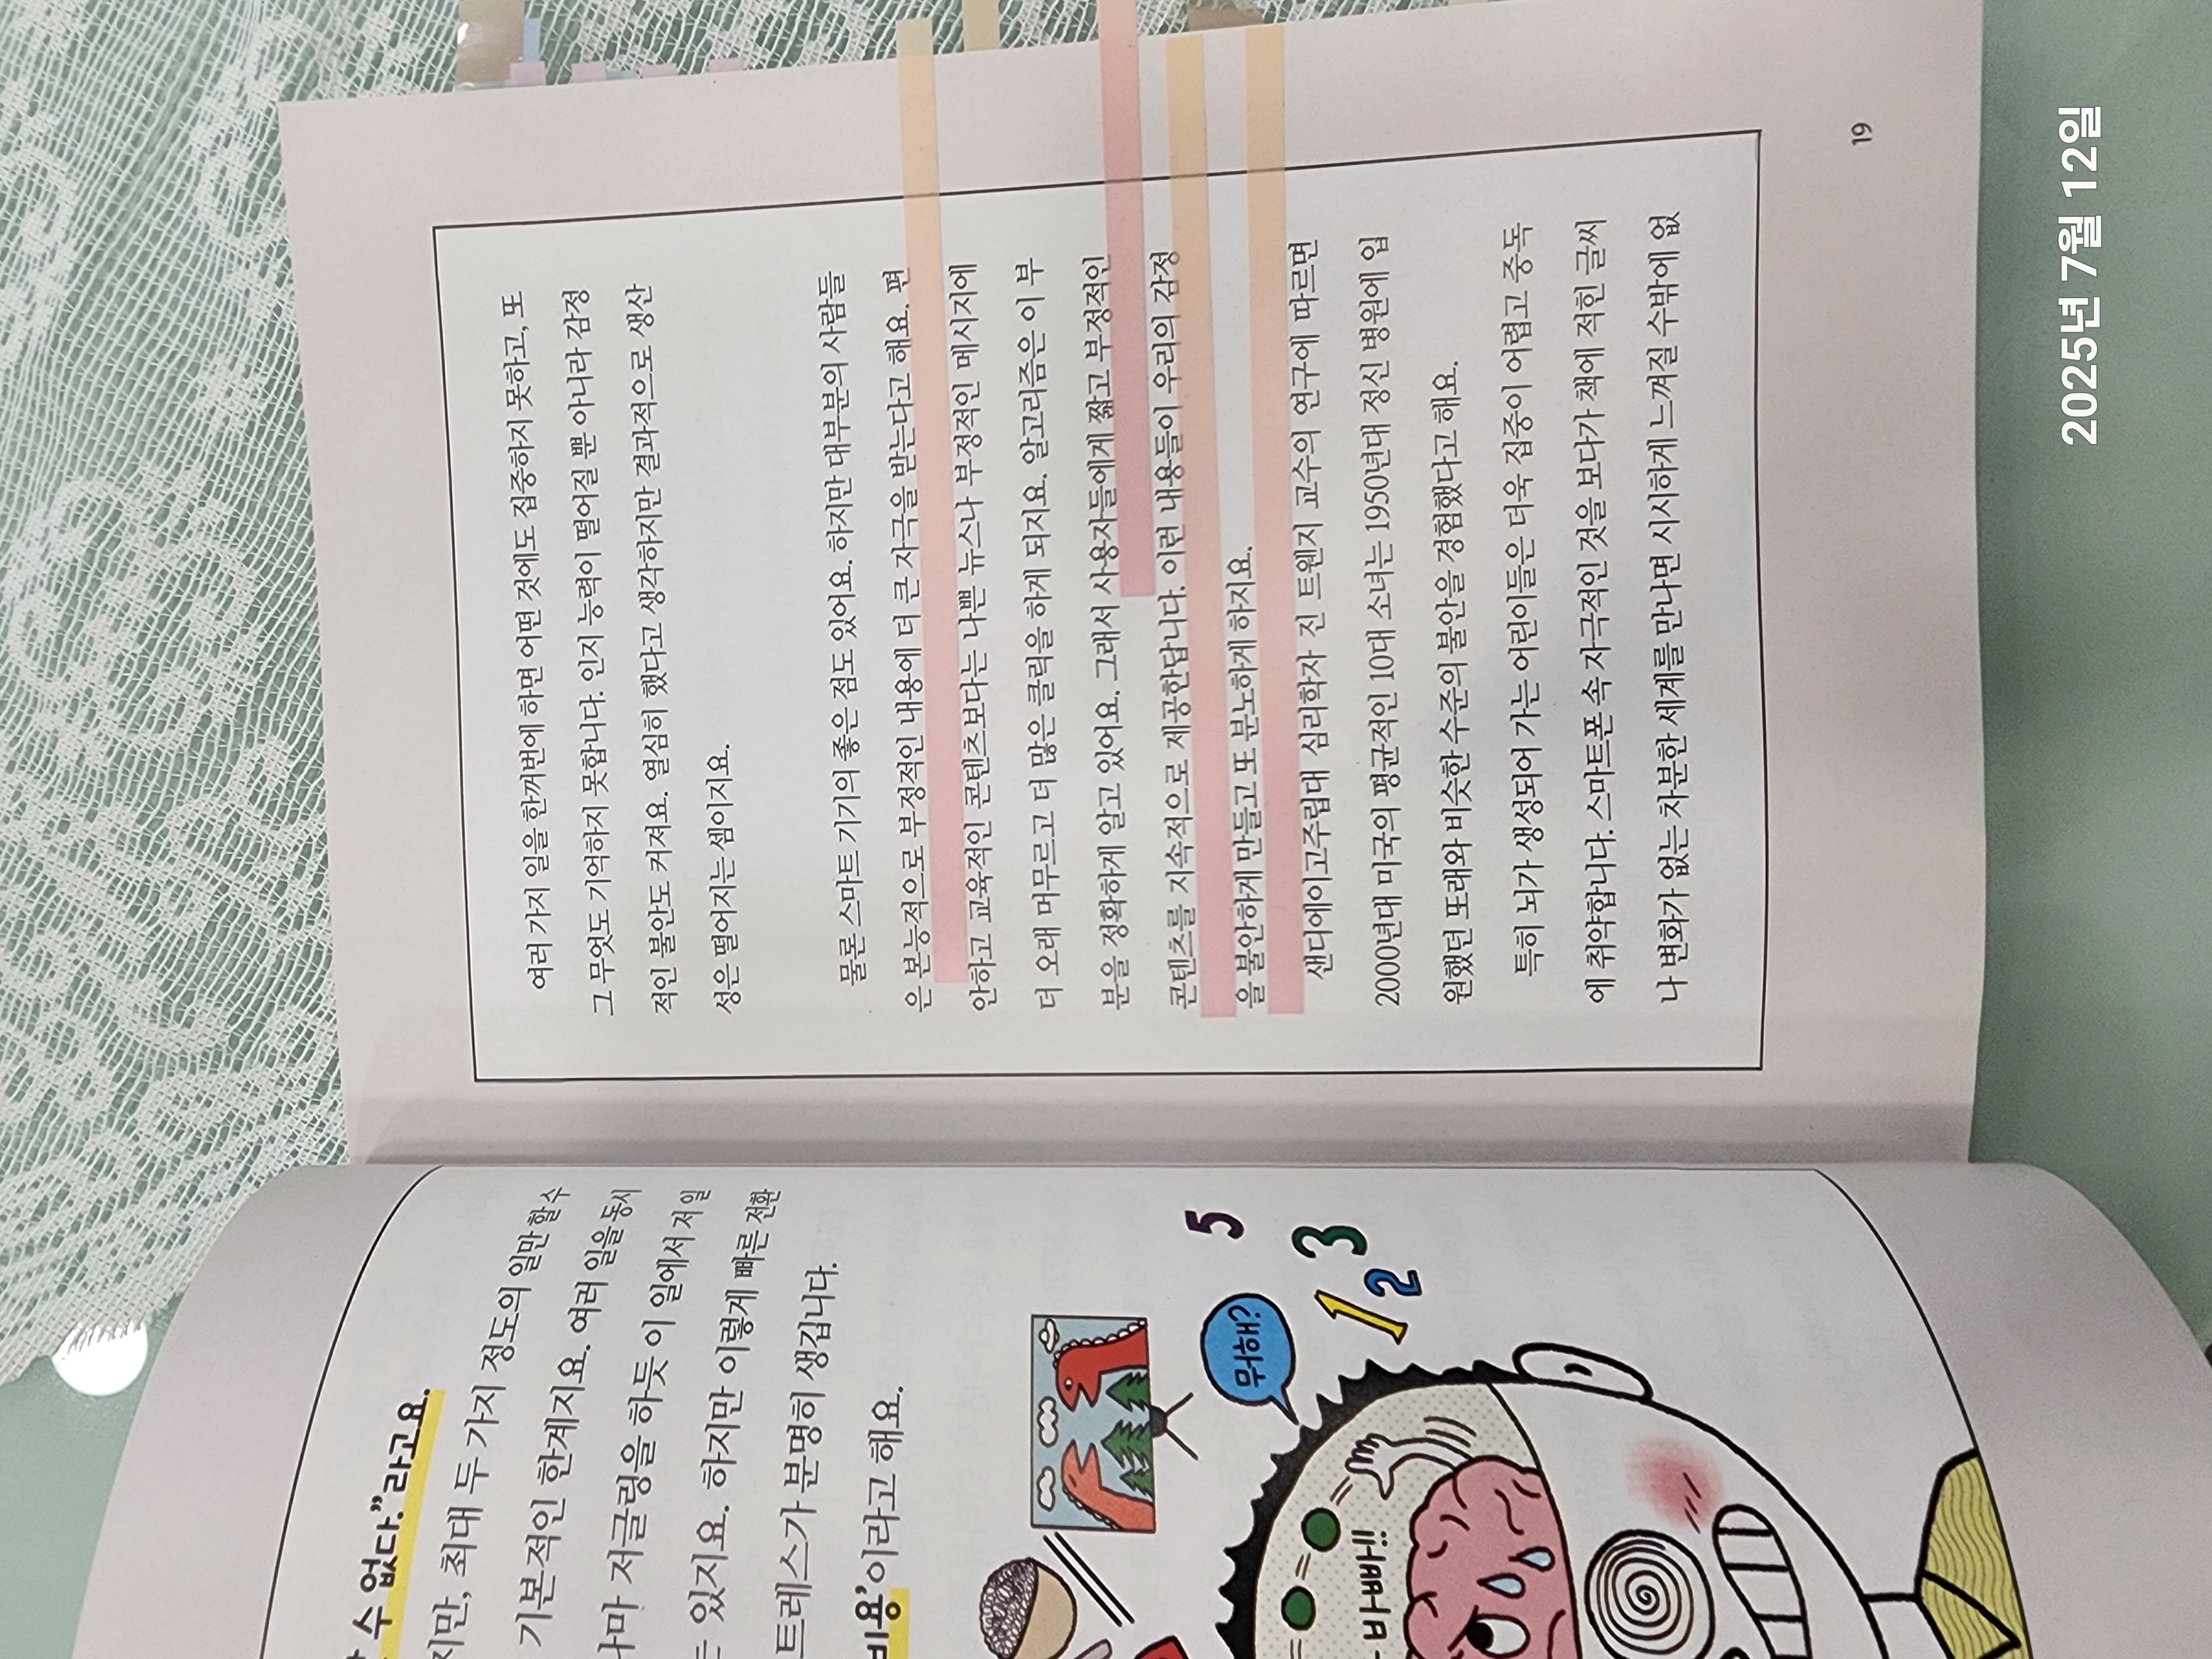 수 없다.”라고요.
지만, 최대 두 가지 정도의 일만 할 수
기본적인 한계지요. 여러 일을 동시
나마 저글링을 하듯 이 일에서 저 일
는 있지요. 하지만 이렇게 빠른 전환
트레스가 분명히 생깁니다.
비용’이라고 해요.
뭐해?
5
1 2 3
바빠!!
여러 가지 일을 한꺼번에 하면 어떤 것에도 집중하지 못하고, 또
그 무엇도 기억하지 못합니다. 인지 능력이 떨어질 뿐 아니라 감정
적인 불안도 커져요. 열심히 했다고 생각하지만 결과적으로 생산
성은 떨어지는 셈이지요.
물론 스마트 기기의 좋은 점도 있어요. 하지만 대부분의 사람들
은 본능적으로 부정적인 내용에 더 큰 자극을 받는다고 해요. 편
안하고 교육적인 콘텐츠보다는 나쁜 뉴스나 부정적인 메시지에
더 오래 머무르고 더 많은 클릭을 하게 되지요. 알고리즘은 이 부
분을 정확하게 알고 있어요. 그래서 사용자들에게 짧고 부정적인
콘텐츠를 지속적으로 제공한답니다. 이런 내용들이 우리의 감정
을 불안하게 만들고 또 분노하게 하지요.
샌디에이고주립대 심리학자 진 트웬지 교수의 연구에 따르면
2000년대 미국의 평균적인 10대 소녀는 1950년대 정신 병원에 입
원했던 또래와 비슷한 수준의 불안을 경험했다고 해요.
특히 뇌가 생성되어 가는 어린이들은 더욱 집중이 어렵고 중독
에 취약합니다. 스마트폰 속 자극적인 것을 보다가 책에 적힌 글씨
나 변화가 없는 차분한 세계를 만나면 시시하게 느껴질 수밖에 없
19
2025년 7월 12일